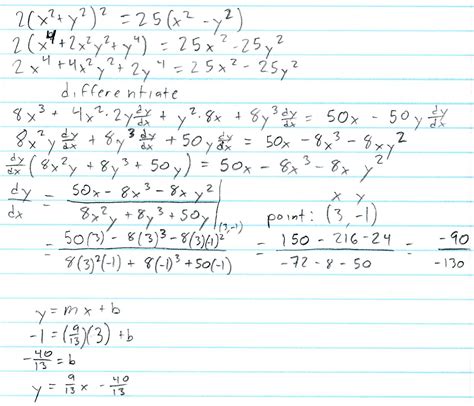 2(x² + y²)² = 25(x² - y²)
2(x⁴ + 2x²y² + y⁴) = 25x² - 25y²
2x⁴ + 4x²y² + 2y⁴ = 25x² - 25y²
differentiate
8x³ + 4x²·2y dy/dx + y²·8x + 8y³ dy/dx = 50x - 50y dy/dx
8x²y dy/dx + 8y³ dy/dx + 50y dy/dx = 50x - 8x³ - 8xy²
dy/dx (8x²y + 8y³ + 50y) = 50x - 8x³ - 8x y²
dy/dx = (50x - 8x³ - 8xy²)/(8x²y + 8y³ + 50y) |(3,-1)
x y
point: (3, -1)
= (50(3) - 8(3)³ - 8(3)(-1)²)/(8(3)²(-1) + 8(-1)³ + 50(-1)) = (150 - 216 - 24)/(-72 - 8 - 50) = -90/-130
y = mx + b
-1 = (9/13)(3) + b
-40/13 = b
y = 9/13 x - 40/13